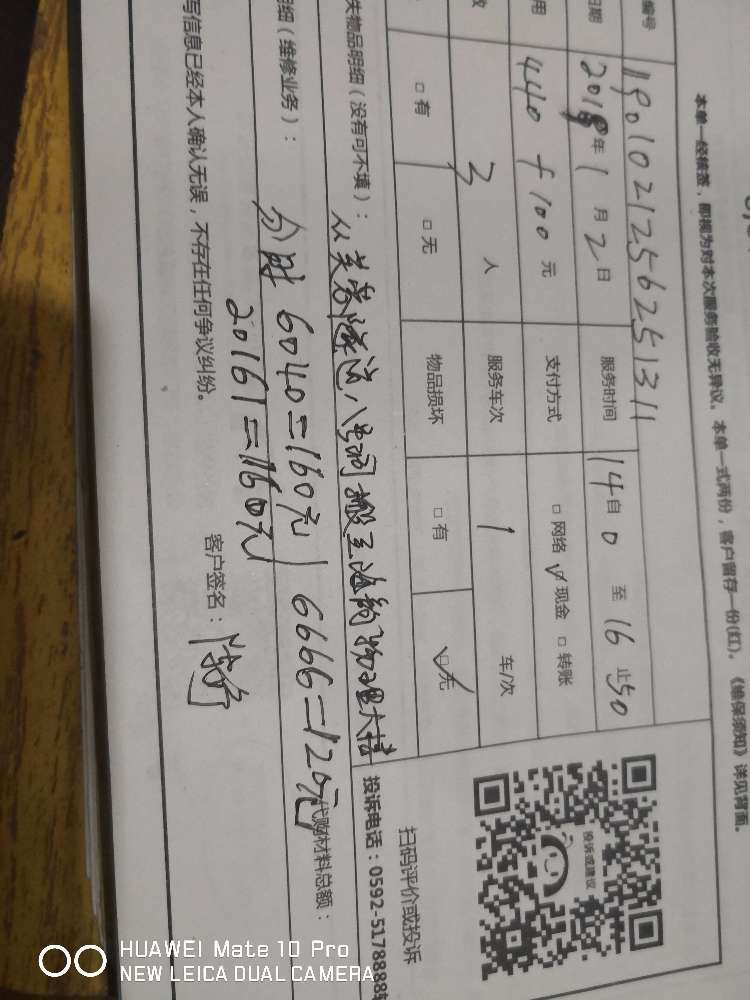 本单一经核签，即视为对本次服务验收无异议。本单一式两份，客户留存一份(红)。《维保须知》详见背面。
编号 1801021256251311
日期 2018年1月2日 服务时间 14自0至16止50
用 440+100元 支付方式 □网络 ☑现金 □转账
数 3人 服务车次 1 车/次
□有 □无 物品损坏 □有 ☑无
投诉或建议
扫码评价或投诉
投诉电话：0592-5178888转
失物品明细（没有可不填）：
明细（维修业务）： 代购材料总额：
6040=160元 6666=120元
20161=160元
写信息已经本人确认无误，不存在任何争议纠纷。 客户签名：
HUAWEI Mate 10 Pro
NEW LEICA DUAL CAMERA